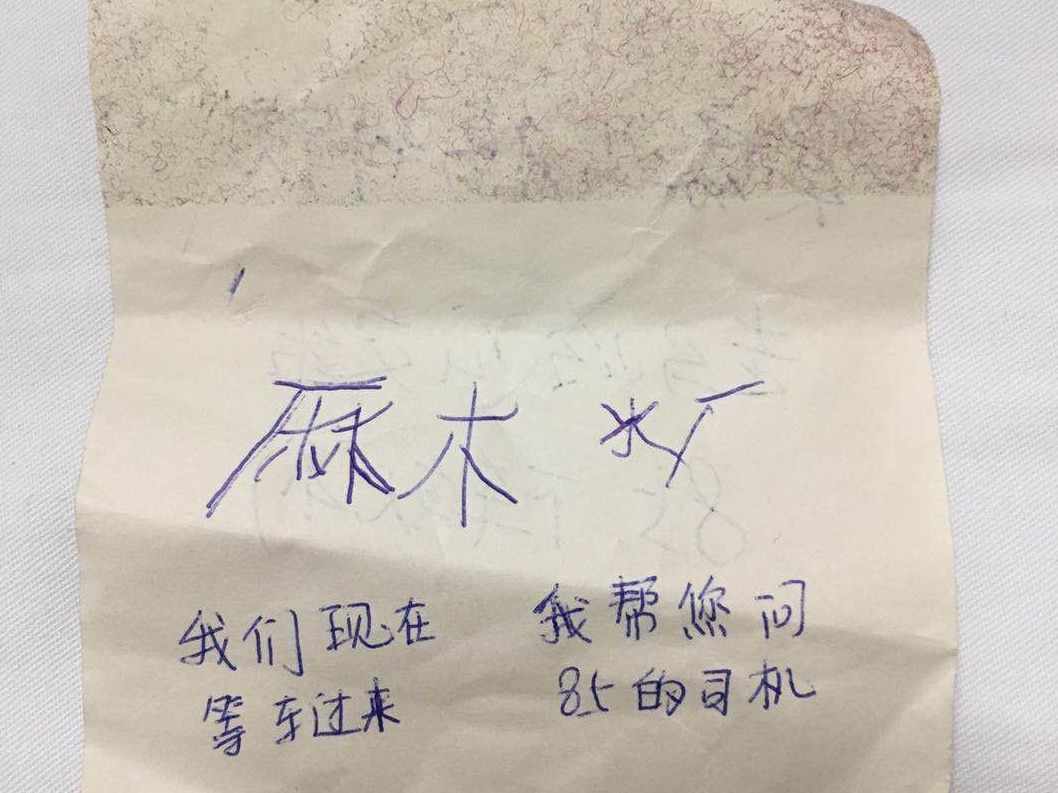 麻木 水厂
我们现在
等车过来
我帮您问
85的司机